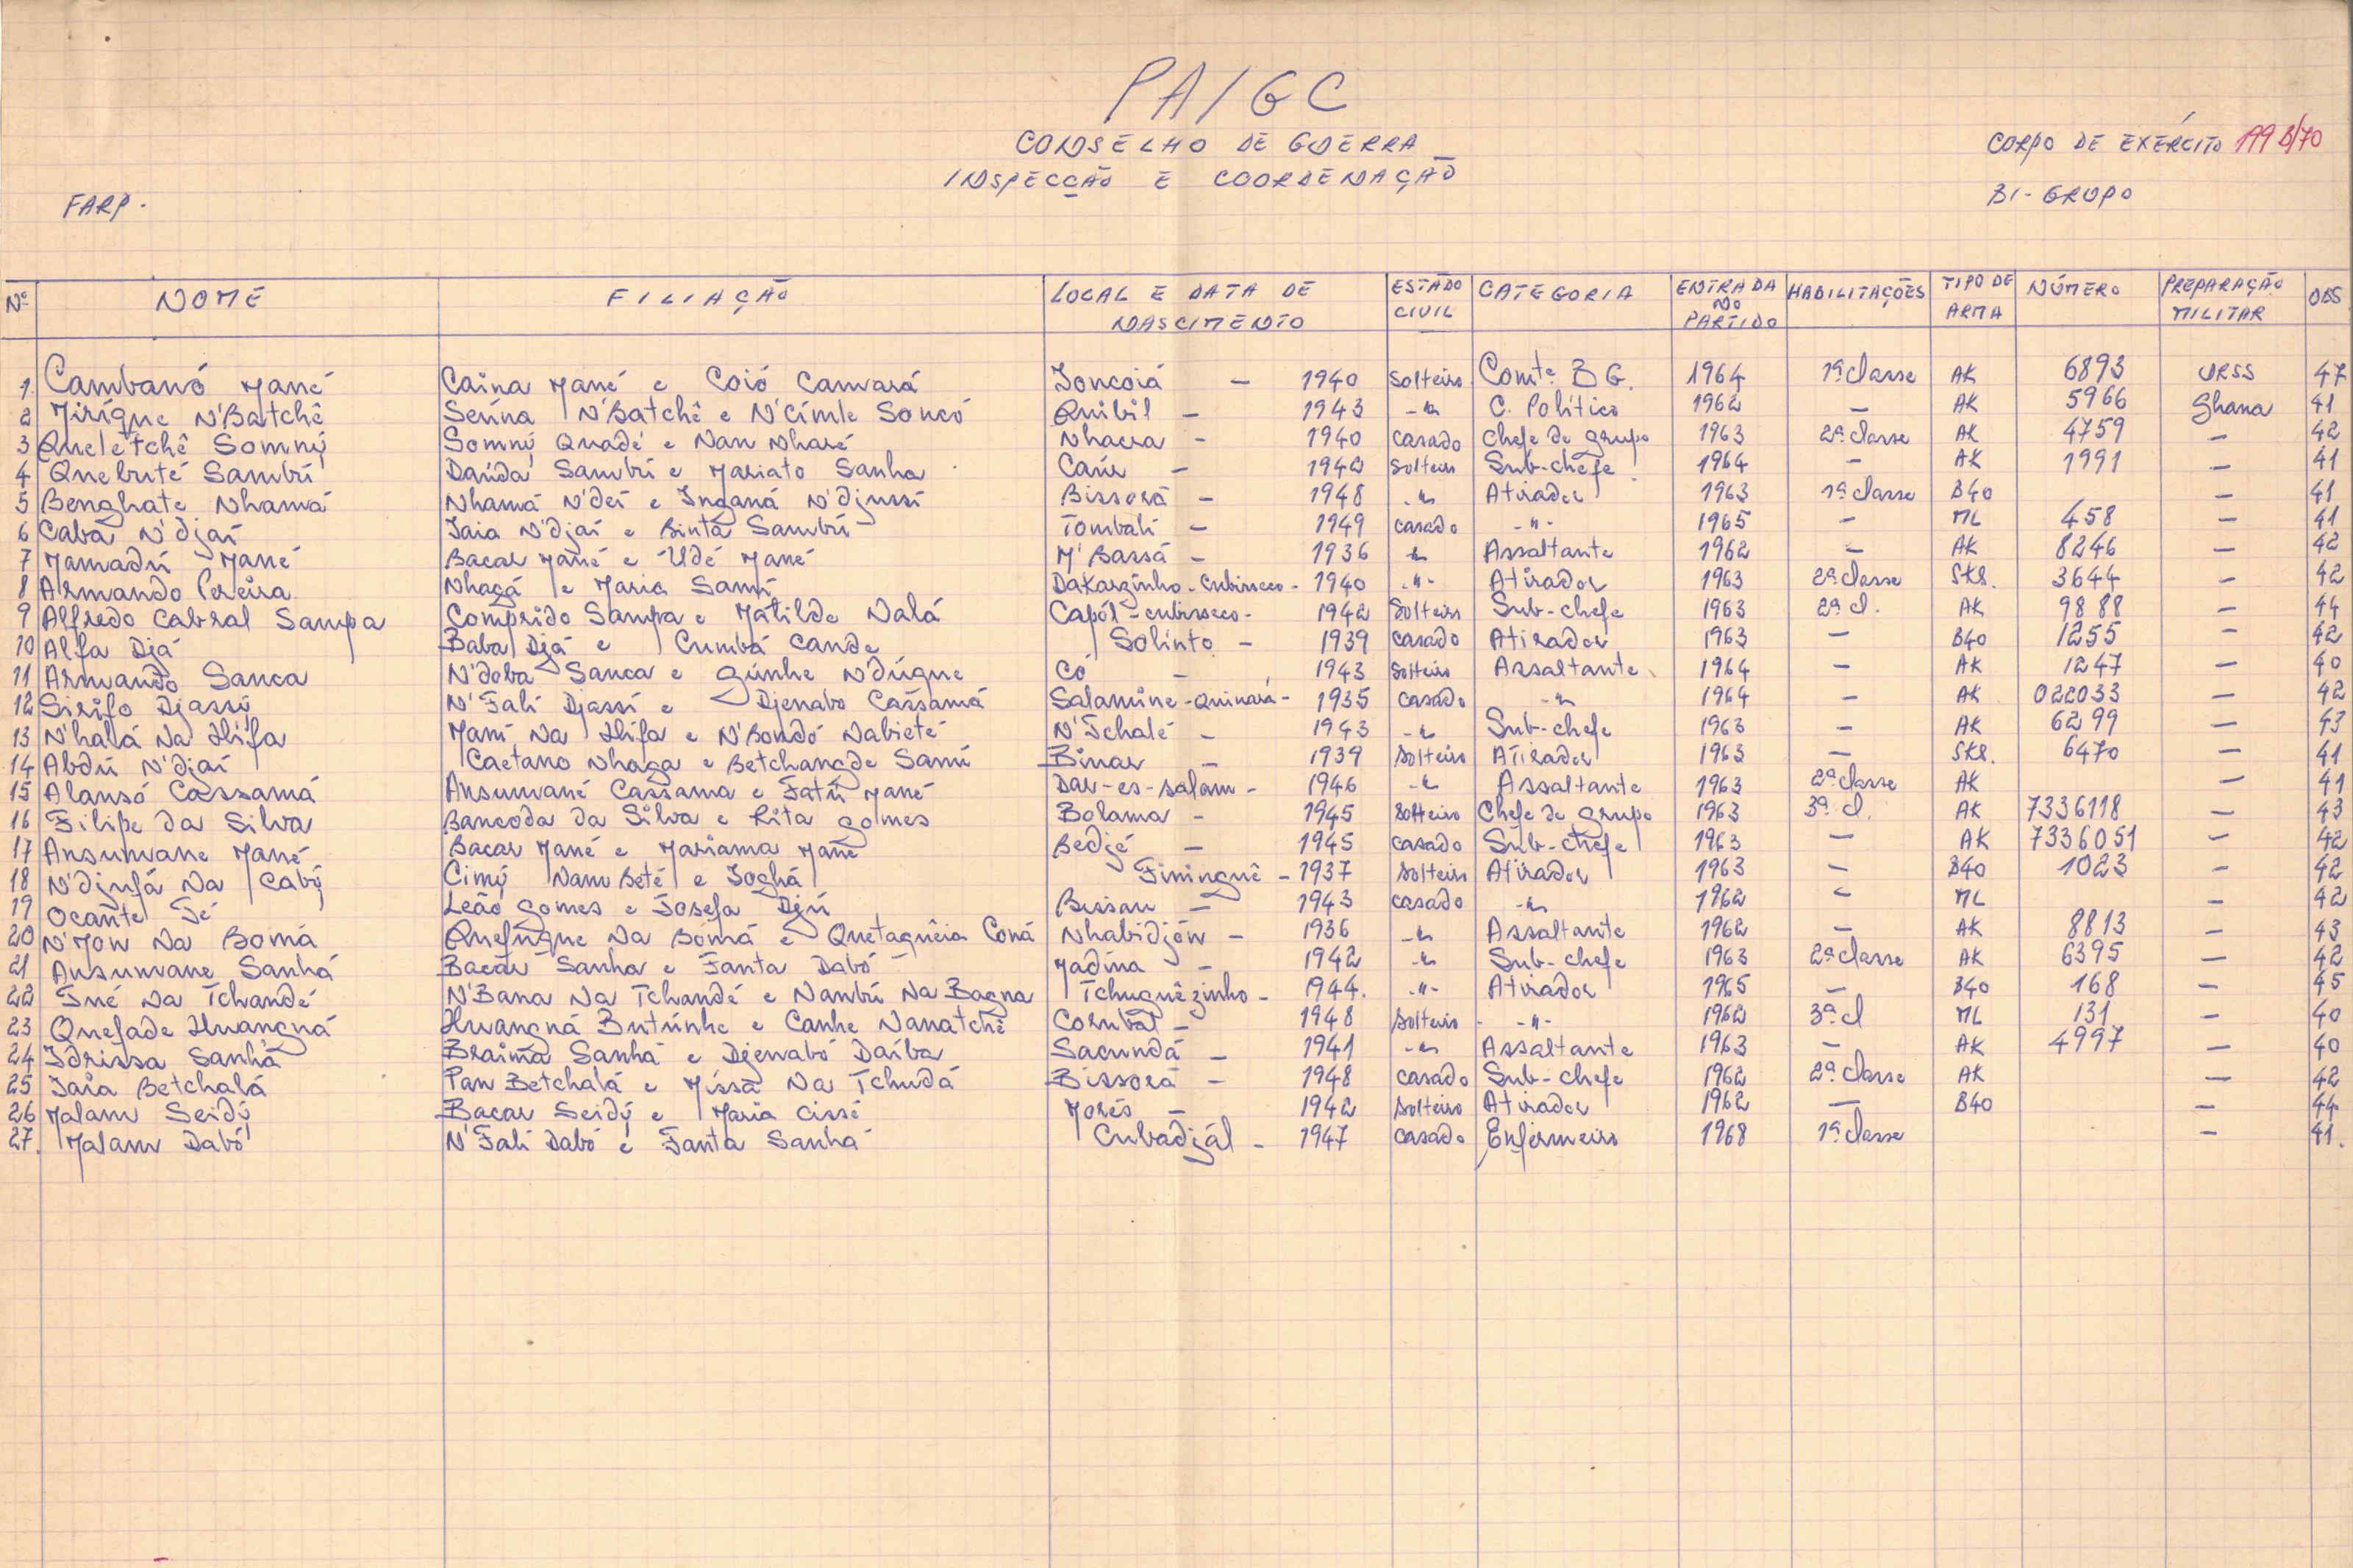 PAIGC
CONSELHO DE GUERRA
INSPECÇÃO E COORDENAÇÃO
CORPO DE EXÉRCITO 199 B/70
FARP.
BI-GRUPO
Nº NOME FILIAÇÃO LOCAL E DATA DE NASCIMENTO ESTADO CIVIL CATEGORIA ENTRADA NO PARTIDO HABILITAÇÕES TIPO DE ARMA NÚMERO PREPARAÇÃO MILITAR OBS
1 Cambanó Mané Caina Mané e Coió Camará Joncoiá - 1940 Solteiro Comte B G. 1964 1ª classe AK 6893 URSS 47
2 Mirígue N'Batchê Serína N'Batchê e N'Címle Soncó Quibil - 1943 -"- C. Político 1962 - AK 5966 Ghana 41
3 Queletchê Somný Somný Quadé e Nan Nharé Nhacra - 1940 casado Chefe de grupo 1963 2ª classe AK 4759 - 42
4 Quebuté Sambú Daúda Sambú e Mariato Sanha Caúr - 1942 Solteiro Sub-chefe 1964 - AK 1991 - 41
5 Benghate Nhamá Nhamá N'deí e Inganá N'djussí Bissorã - 1948 -"- Atirador 1963 1ª classe B40 - 41
6 Cabá N'djaí Iaia N'djaí e Binta Sambú Tombalí - 1949 casado -"- 1965 - ML 458 - 41
7 Mamadú Mané Bacar Mané e Údé Mané M'Bassá - 1936 -"- Assaltante 1962 - AK 8246 - 42
8 Armando Pereira Nhagá e Maria Samí Dakarzinho-Cubisseco - 1940 -"- Atirador 1963 2ª classe SKS. 3644 - 42
9 Alfredo Cabral Sampa Comprido Sampa e Matilde Nalá Capól-cubisseco - 1942 Solteiro Sub-chefe 1963 2ª cl. AK 9888 - 44
10 Alfa Djá Baba Djá e Cumbá Cande Solinto - 1939 casado Atirador 1963 - B40 1255 - 42
11 Armando Sanca N'doba Sanca e Gúnhe N'dúgue Có - 1943 Solteiro Assaltante 1964 - AK 1247 - 40
12 Sirifo Djassý N'Falí Djassí e Djenabo Cassamá Salamine-Quinará - 1935 casado -"- 1964 - AK 022033 - 42
13 N'halá Na Hífa Maní Na Hífa e N'Bondó Nabieté N'Tchalé - 1943 -"- Sub-chefe 1963 - AK 6299 - 43
14 Abdú N'djaí Caetano Nhaga e Betchangde Samí Binar - 1939 Solteiro Atirador 1963 - SKS. 6470 - 41
15 Alansó Cassamá Ansumané Cassama e Fatú Mané Dar-es-salam - 1946 -"- Assaltante 1963 2ª classe AK - 41
16 Filipe da Silva Bancoda da Silva e Rita Gomes Bolama - 1945 Solteiro Chefe de grupo 1963 3ª cl. AK 7336118 - 43
17 Ansumane Mané Bacar Mané e Mariama Mané Bedjé - 1945 casado Sub-chefe 1963 - AK 7336051 - 42
18 N'djufá Na Cabý Cimý Nam Beté e Joghá Finingué - 1937 Solteiro Atirador 1963 - B40 1023 - 42
19 Ocante Té Leão Gomes e Josefa Djú Bissau - 1943 casado -"- 1962 - ML - 42
20 N'Mon Na Bomá Quefúgue Na Bomá e Quetaguêia Coná Nhabidjón - 1936 -"- Assaltante 1962 - AK 8813 - 43
21 Ansumane Sanhá Bacár Sanha e Fanta Dabó Madína - 1942 -"- Sub-chefe 1963 2ª classe AK 6395 - 42
22 Iné Na Tchandé N'Bana Na Tchandé e Nambú Na Bagna Tchuguêzinho - 1944. -"- Atirador 1965 - B40 168 - 45
23 Quefade Huangná Huangná Butúnhe e Canhe Nanatchê Corubal - 1948 Solteiro -"- 1962 3ª cl ML 131 - 40
24 Idrissa Sanhá Braima Sanhá e Djenabó Daíba Sacundá - 1941 -"- Assaltante 1963 - AK 4997 - 40
25 Iaia Betchalá Pan Betchalá e Míssa Na Tchudá Bissorã - 1948 casado Sub-chefe 1962 2ª classe AK - 42
26 Malam Seidý Bacar Seidý e Maria Cissé Morés - 1942 Solteiro Atirador 1962 - B40 - 44
27. Malam Dabó N'Falí Dabó e Fanta Sanhá Cubadjál - 1947 casado Enfermeiro 1968 1ª classe - 41.